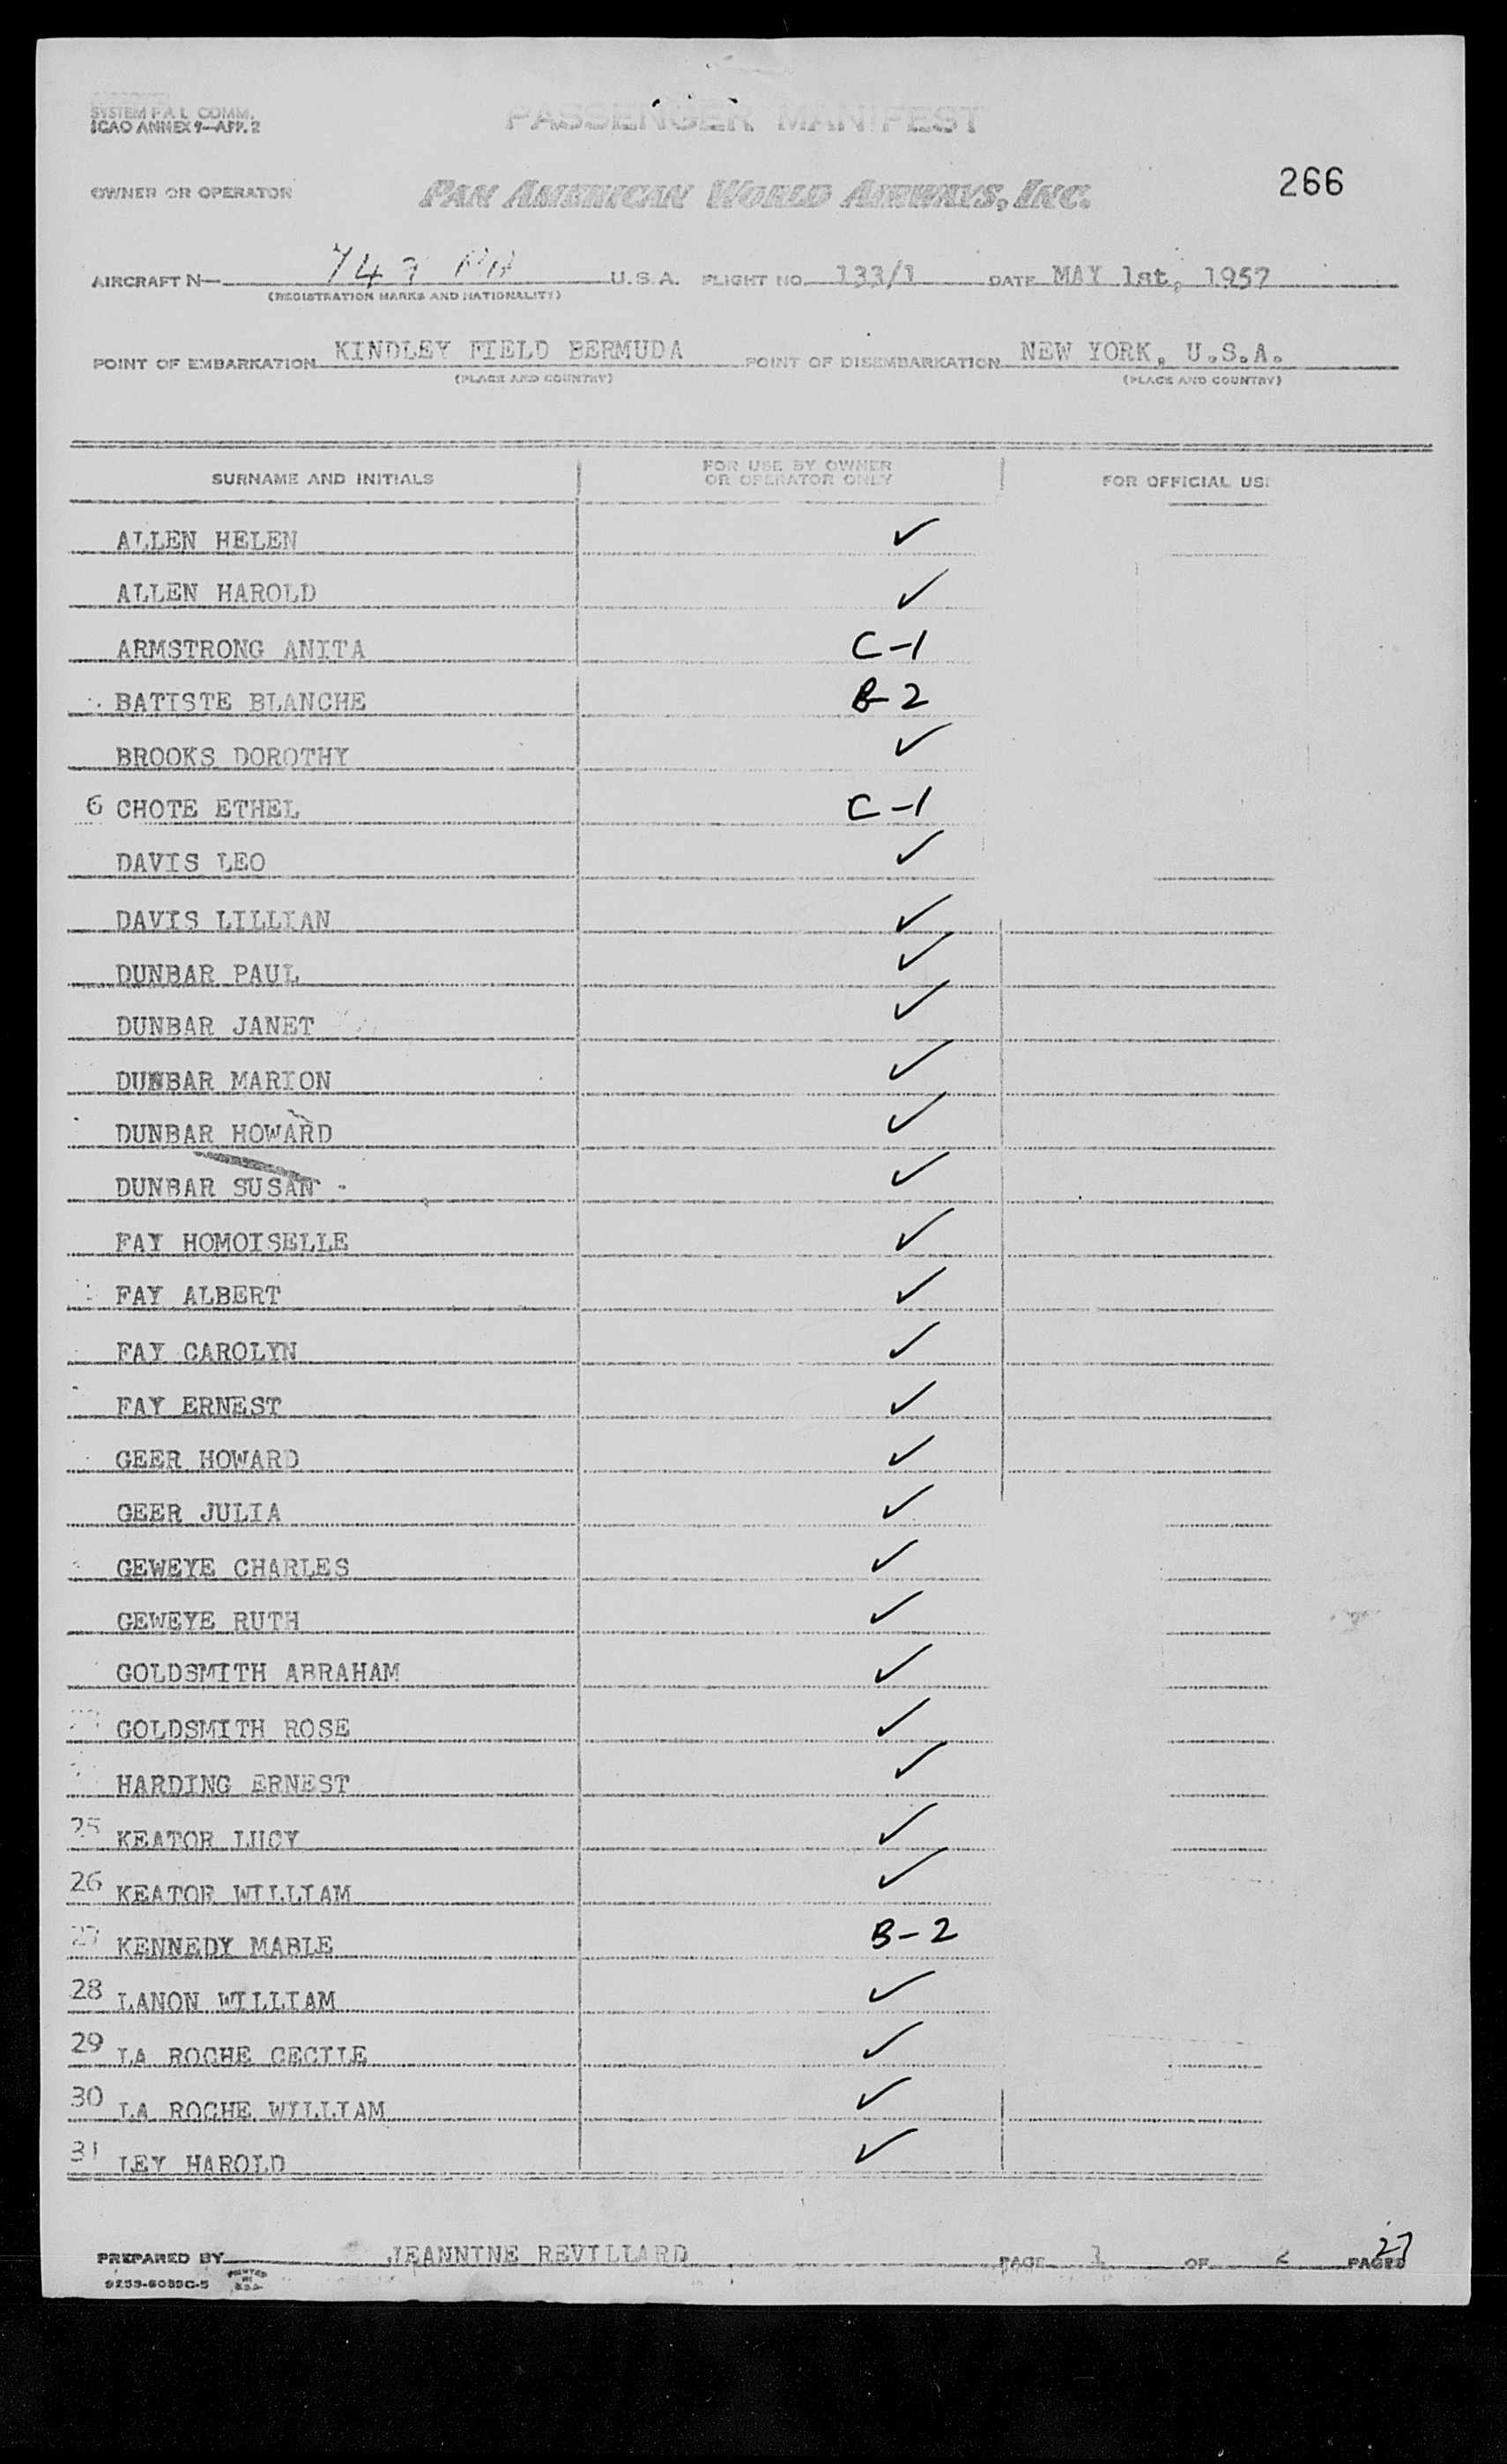 SYSTEM F A L COMM.
ICAO ANNEX 9—APP. 2
PASSENGER MANIFEST
OWNER OR OPERATOR PAN AMERICAN WORLD AIRWAYS, INC. 266
AIRCRAFT N— U.S.A. FLIGHT NO. 133/1 DATE MAY 1st, 1957
(REGISTRATION MARKS AND NATIONALITY)
POINT OF EMBARKATION KINDLEY FIELD BERMUDA POINT OF DISEMBARKATION NEW YORK, U.S.A.
(PLACE AND COUNTRY) (PLACE AND COUNTRY)
SURNAME AND INITIALS FOR USE BY OWNER OR OPERATOR ONLY FOR OFFICIAL US
ALLEN HELEN ✓
ALLEN HAROLD ✓
ARMSTRONG ANITA C-1
BATISTE BLANCHE B-2
BROOKS DOROTHY ✓
6 CHOTE ETHEL C-1
DAVIS LEO ✓
DAVIS LILLIAN ✓
DUNBAR PAUL ✓
DUNBAR JANET ✓
DUNBAR MARION ✓
DUNBAR HOWARD ✓
DUNBAR SUSAN ✓
FAY HOMOISELLE ✓
FAY ALBERT ✓
FAY CAROLYN ✓
FAY ERNEST ✓
GEER HOWARD ✓
GEER JULIA ✓
GEWEYE CHARLES ✓
GEWEYE RUTH ✓
GOLDSMITH ABRAHAM ✓
GOLDSMITH ROSE ✓
HARDING ERNEST ✓
25 KEATOR LUCY ✓
26 KEATOR WILLIAM ✓
27 KENNEDY MABLE B-2
28 LANON WILLIAM ✓
29 LA ROCHE CECILE ✓
30 LA ROCHE WILLIAM ✓
31 LEY HAROLD ✓
PREPARED BY JEANNINE REVILLARD PAGE 1 OF 2 PAGES
27
9253-6089C-5 PRINTED IN U.S.A.